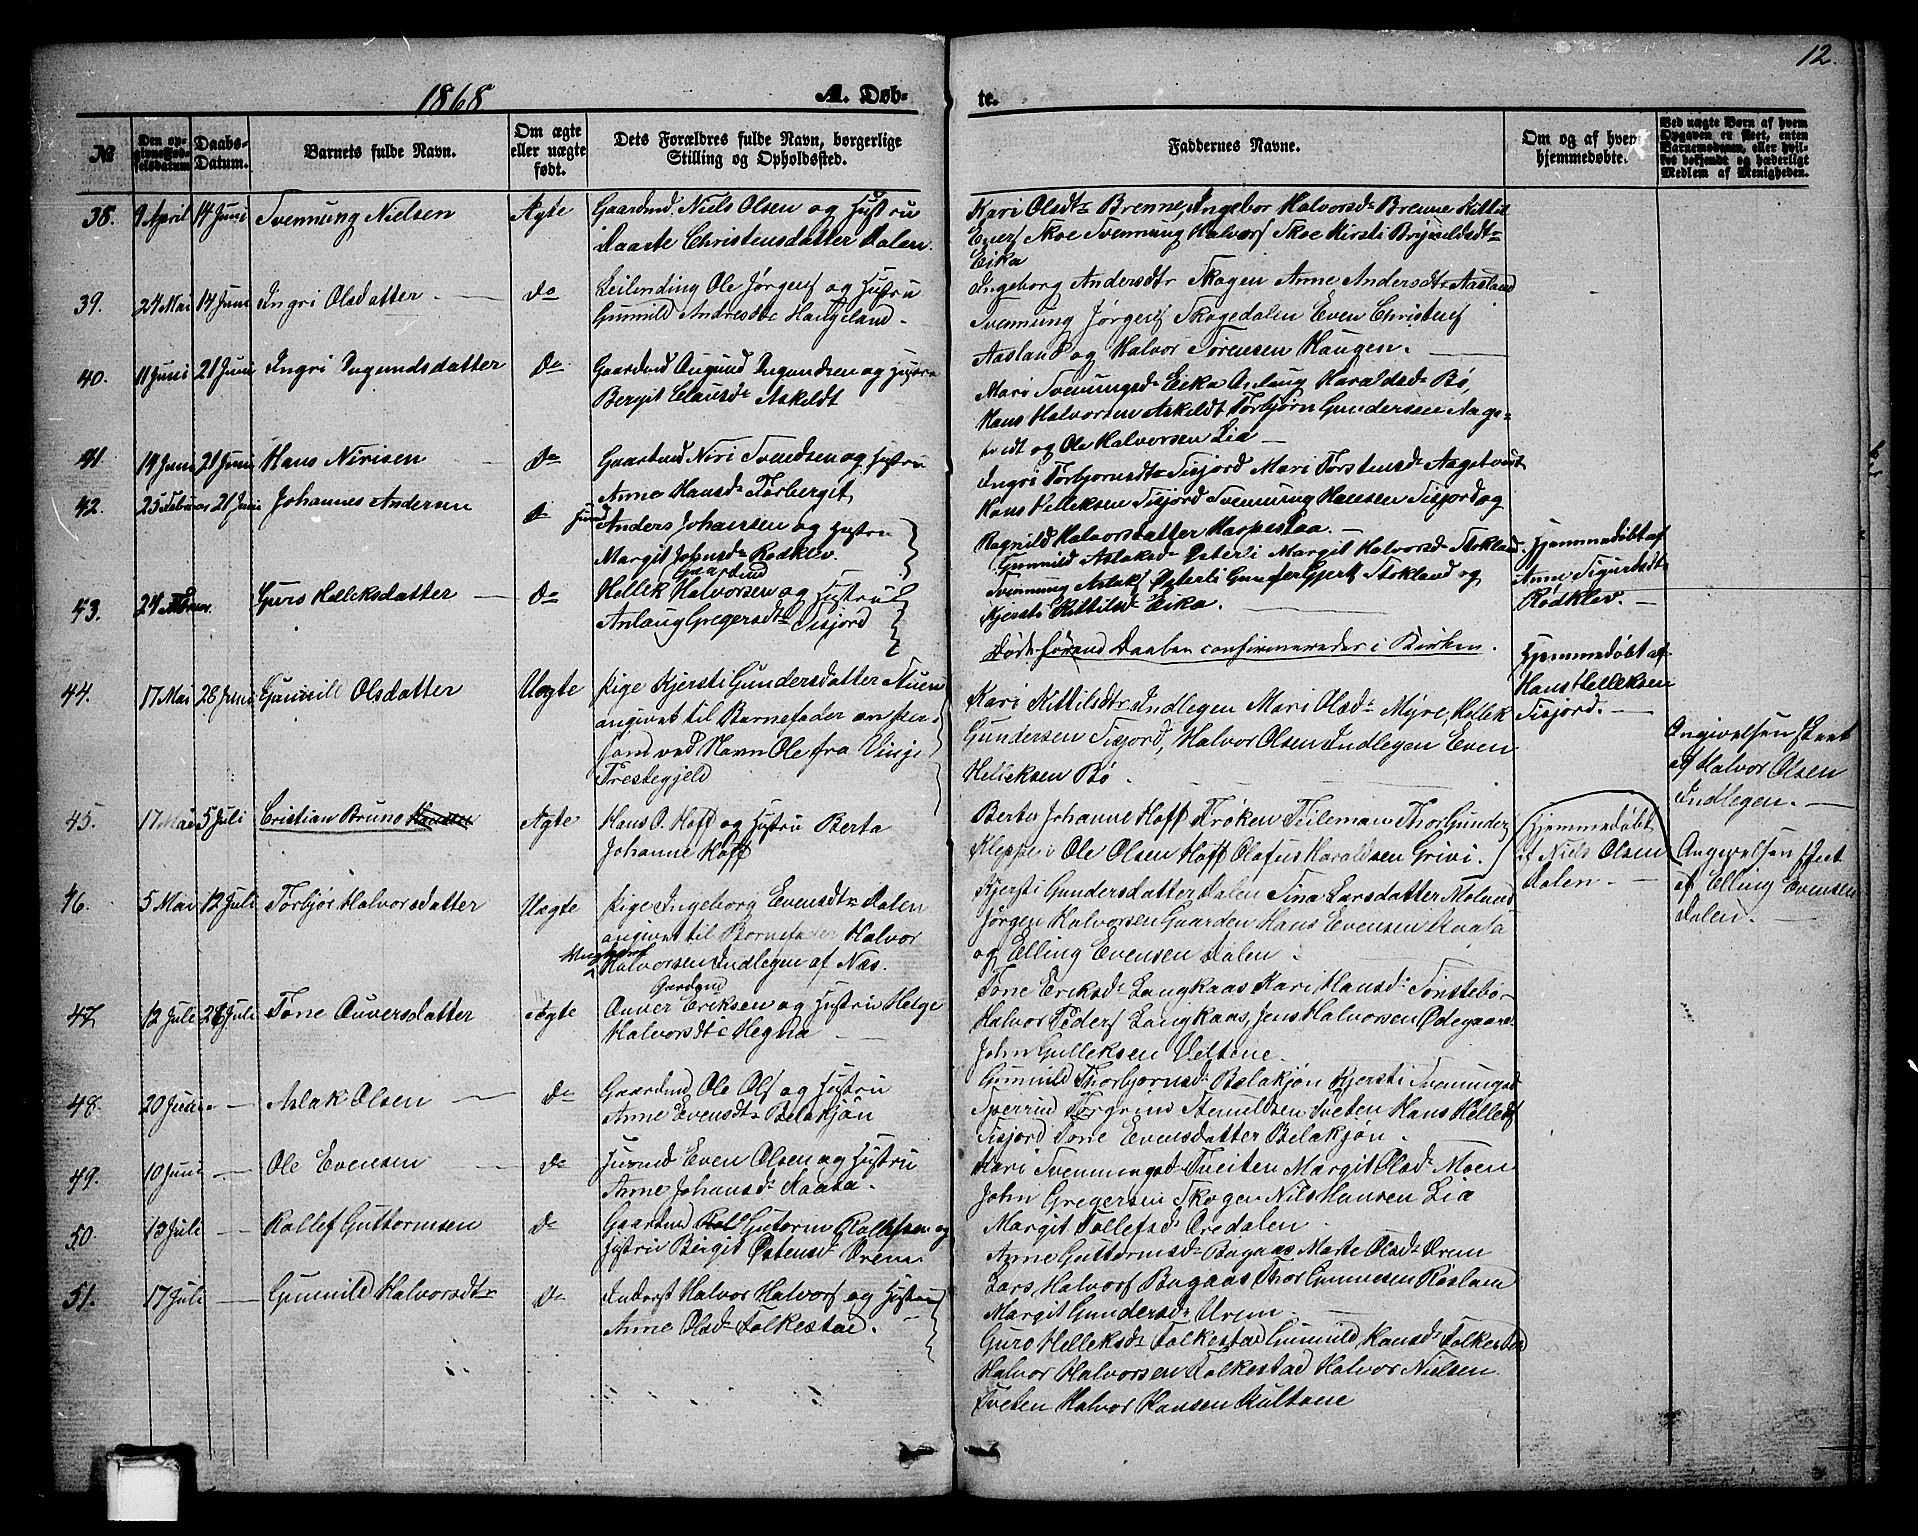 12.
1868
A. Døb-
te.
No
Den op-
givne Fød-
selsdatum
Daabs-
Datum.
Barnets fulde Navn.
Om ægte
eller uægte
født.
Dets Forældres fulde Navn, borgerlige
Stilling og Opholdssted.
Faddernes Navne.
Om og af hvem
hjemmedøbte.
Ved uægte Børn af hvem
Opgaven er skeet, enten
Barnemoderen, eller hvil-
ket bekjendt og hæderligt
Medlem af Menigheden.
38. 9 April 14 Juni Svennung Nielsen Ægte Gaardmd. Niels Olsen og Hustru
Daarte Christensdatter Dalen.
Kari Olsdtr Brenne, Ingebor Halvorsdr Brenne Kittil
Enerf Skoe Svennung Halvorf Skoe Kirsti Brynildsdtr
Eika
39. 24 Mai 14 Juni Ingri Olsdatter do Leilending Ole Jørgenf og Hustru
Gunnild Andresdtr Haugeland.
Ingeborg Andersdtr Skogen Anne Andersdtr Aasland
Svennung Jørgenf Skogedalen Even Christenf
Aasland og Halvor Sørensen Haugen.
40. 11 Juni 21 Juni Ingri Augundsdatter do Gaardmd Augund Augundsen og Hustru
Bergit Clausdr Askildt
Mari Svenungsdr Eika Anlaug Haraldsdr Bø,
Hans Halvorsen Askildt Torbjørn Gundersen Aage-
tvedt og Ole Halvorsen Lia
41 14 Juni 21 Juni Hans Nirisen do Gaardmd Niri Svendsen og Hustru
Anne Hansdr Torberget
Ingri Torbjørnsdtr Tisjord Mari Torstensdr Aagetvedt
Hans Helleksen Tisjord Svennung Hansen Tisjord og
Ragnild Halvorsdatter Harpestaa.
42. 25 Februar 21 Juni Johannes Andersen do Husmd Anders Johansen og Hustru
Margit Johnsdr Rødklev.
Gunnild Aslaksdr Østerli Margit Halvorsdr Stokland
Svennung Aslakf Østerli Gunder Gjertf Stokland og
Kjersti Kittilsdr Eika.
Hjemmedøbt af
Anne Sigurdsdtr
Rødklev.
43. Guro Helleksdatter do Gaardmd
Hellek Halvorsen og Hustru
Anlaug Gregersdtr Tisjord
Døde førend Daaben confirmeredes i Kirken.
Hjemmedøbt af
Hans Helleksen
Tisjord.
44. 17 Mai 28 Juni Gunnild Olsdatter Uægte Pige Kjersti Gundersdatter Nuen
angivet til Barnefader en Per-
son ved Navn Ole fra Vinje
Prestegjeld
Kari Kittilsdtr Indlegen Mari Olsdr Myre, Hellek
Gundersen Tisjord, Halvor Olsen Indlegen Even
Helleksen Bø.
Angivelsen skeet
af Halvor Olsen
Indlegen.
45. 17 Mai 5 Juli Cristian Bruno Ægte Hans P. Hoff og Hustru Berta
Johanne Hoff
Berte Johanne Hoff Frøken Teileman Thor Gunder
Kleppen Ole Olsen Hoff Olafus Haraldsen Grivi.
Hjemmedøbt
af Niels Olsen
Dalen
46. 5 Mai 12 Juli Torbjør Halvorsdatter Uægte Pige Ingeborg Evensdtr Dalen
angivet til Barnefader Halvor
Ungkarl
Halvorsen Indlegen af Næs.
Kjersti Gundersdatter Dalen Tina Larsdatter
Jørgen Halvorsen Gaarden Hans Evensen Aaasa
og Elling Evensen Dalen.
Angivelsen skeet
af Elling Evensen
Dalen.
47 12 Juli 26 Juli Tone Auversdatter Ægte Gardmd
Auver Eriksen og Hustru Helge
Halvorsdtr Hegna
Tone Eriksdr Langkaas Kari Hansdr Tonstebø
Halvor Pederf Langkaas, Jens Halvorsen Ødegaard
John Gulleksen Veltene.
48. 20 Juni Aslak Olsen do Gaardmd Ole Olf og Hustru
Anne Evensdtr Belakjøn
Gunnild Thorbjørnsdr Belakjøn Kjersti Svenningsd
Sperrud Torgrim Stenuldsen Tveten Hans Hellekf
Tisjord Tone Evensdatter Belakjøn.
49. 10 Juni Ole Evensen do Husmd Even Olsen og Hustru
Anne Johansdr Aaasa.
Kari Svenningsd Tveiten Margit Olsdr Moen
John Gregersen Skogen Nils Hansen Lia
Margit Tollefsd Oredalen.
50. 13 Juli Rollef Guttormsen do Gaardmd Gutorm Rollefsen og
Hustru Birgit Østensd Vreim
Anne Guttormsdr Bugaas Marte Olsdr Vreim
Lars Halvorf Bugaas Thor Gunnesen Røslan
Margit Gundersdr Urem.
51. 17 Juli Gunnild Halvorsdtr do Inderst Halvor Halvorf og Hustru
Anne Olsdr Folkestad.
Guro Helleksdr Folkestad Gunnild Hansdr Folkestad
Halvor Halvorsen Folkestad Halvor Nielsen
Tveten Halvor Hansen Kultane